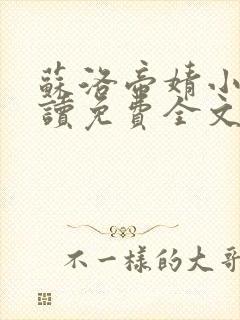 蘇洛帝婧小
讀免費全文
不一樣的大哥